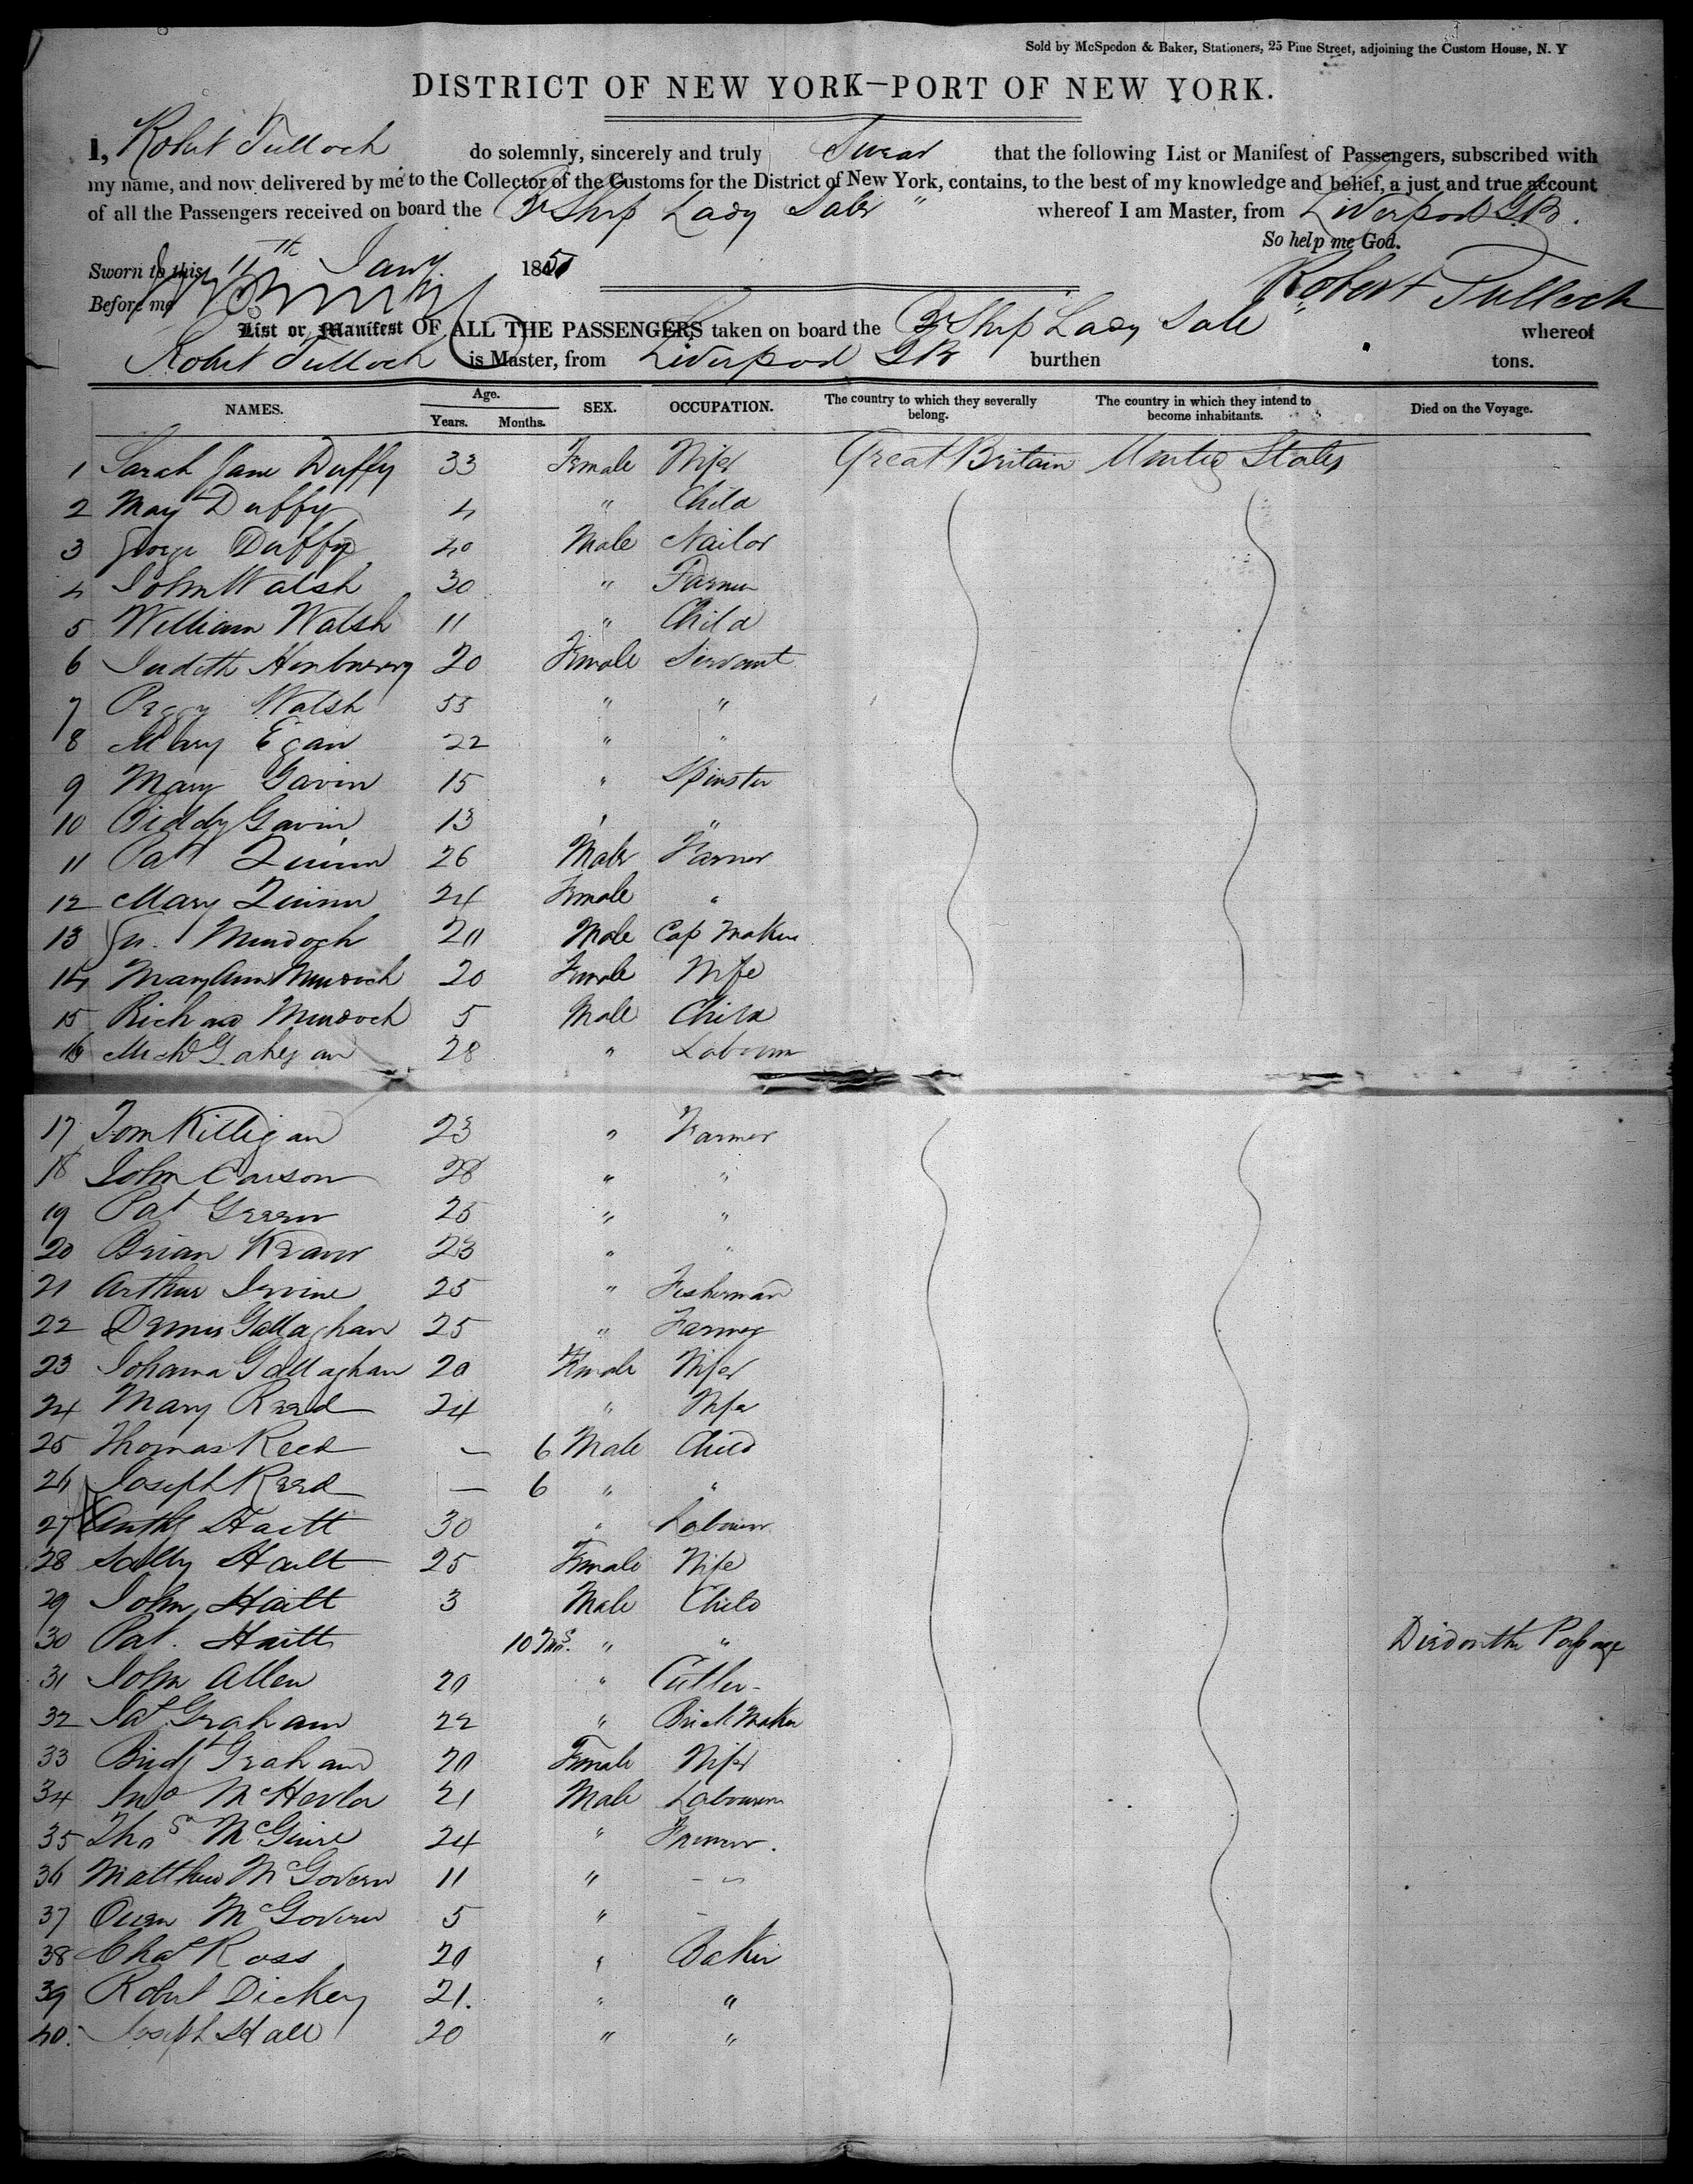 Sold by McSpedon & Baker, Stationers, 25 Pine Street, adjoining the Custom House, N. Y
DISTRICT OF NEW YORK—PORT OF NEW YORK.
I, Robert Tulloch do solemnly, sincerely and truly Swear that the following List or Manifest of Passengers, subscribed with
my name, and now delivered by me to the Collector of the Customs for the District of New York, contains, to the best of my knowledge and belief, a just and true account
of all the Passengers received on board the Br Ship Lady Sale " whereof I am Master, from Liverpool GB.
So help me God.
Sworn to this 11th Jany. 1851
Robert Tulloch
Before me
List or Manifest OF ALL THE PASSENGERS taken on board the Br Ship Lady Sale whereof
Robert Tulloch is Master, from Liverpool GB burthen tons.
NAMES. Age. Years. Months. SEX. OCCUPATION. The country to which they severally belong. The country in which they intend to become inhabitants. Died on the Voyage.
1 Sarah Jane Duffy 33 Female Wife Great Britain United States
2 May Duffy 4 " Child
3 George Duffy 40 Male Nailor
4 John Walsh 30 " Farmer
5 William Walsh 11 " Child
6 Judith 20 Female Servant
7 Peggy Walsh 55 " "
8 Mary Egan 22 " "
9 Mary Gavin 15 " Spinster
10 Biddy Gavin 13 " "
11 Pat Quinn 26 Male Farmer
12 Mary Quinn 24 Female "
13 Murdogh 20 Male Cap Maker
14 Mary Ann Murdoch 20 Female Wife
15 Richard Murdoch 5 Male Child
16 Michl Gahegan 28 " Labourer
17 Tom Killigan 23 " Farmer
18 John Carson 28 " "
19 Pat Green 25 " "
20 Brian Keane 23 " "
21 Arthur Irvine 25 " Fisherman
22 Dennis Gallaghan 25 " Farmer
23 Johanna Gallaghan 20 Female Wife
24 Mary Reed 24 " Wife
25 Thomas Reed — 6 Male Child
26 Joseph Reed — 6 " "
27 Anthy Haitt 30 " Labourer
28 Sally Hailt 25 Female Wife
29 John Haitt 3 Male Child
30 Pat. Haitt 10 Mos. " " Died on the Passage
31 John Allen 20 " Cutler
32 Graham 22 " Brick Maker
33 Bridt Graham 20 Female Wife
34 Jno 21 Male Labourer
35 Thos McGuire 24 " Farmer.
36 Matthew McGovern 11 " - "
37 Owen McGovern 5 " -
38 Chas Ross 20 " Baker
39 Robert Dickey 21. " "
40. Joseph Hall 20 " "